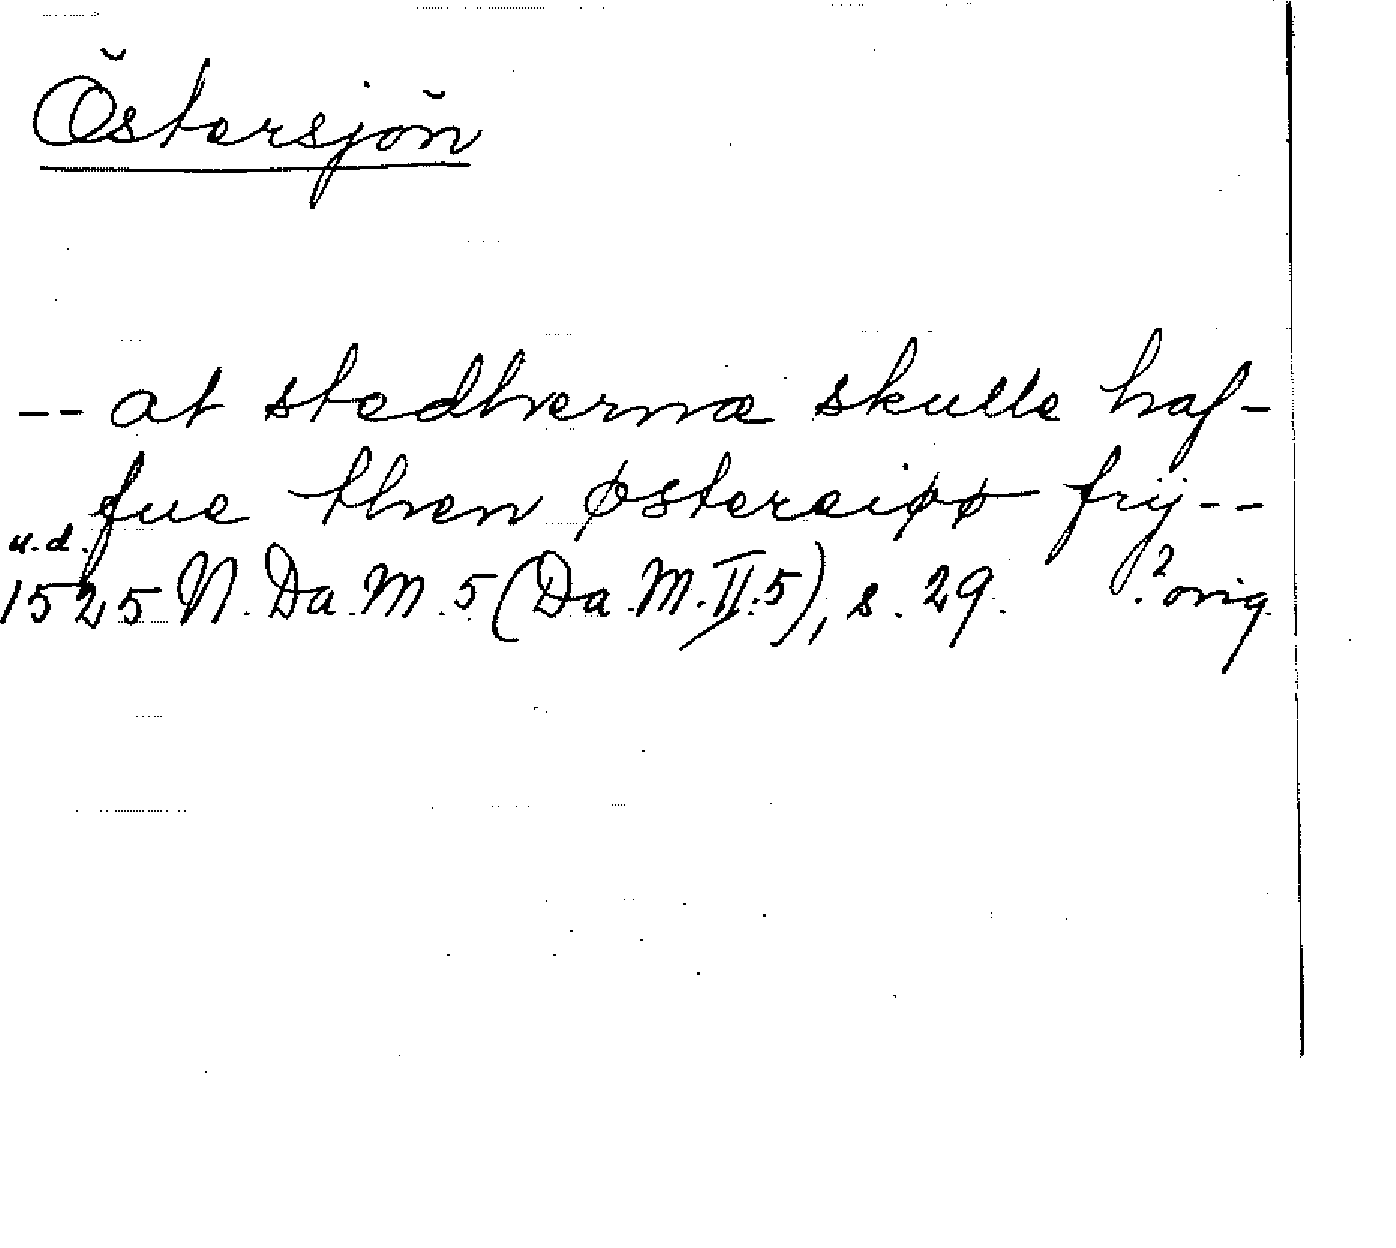 Östersjön
-- at stedherna skulle haf-
fue then østereiøø frij--
u.d.
1525 N. Da. M. 5 (Da. M. II. 5), s. 29. ? orig